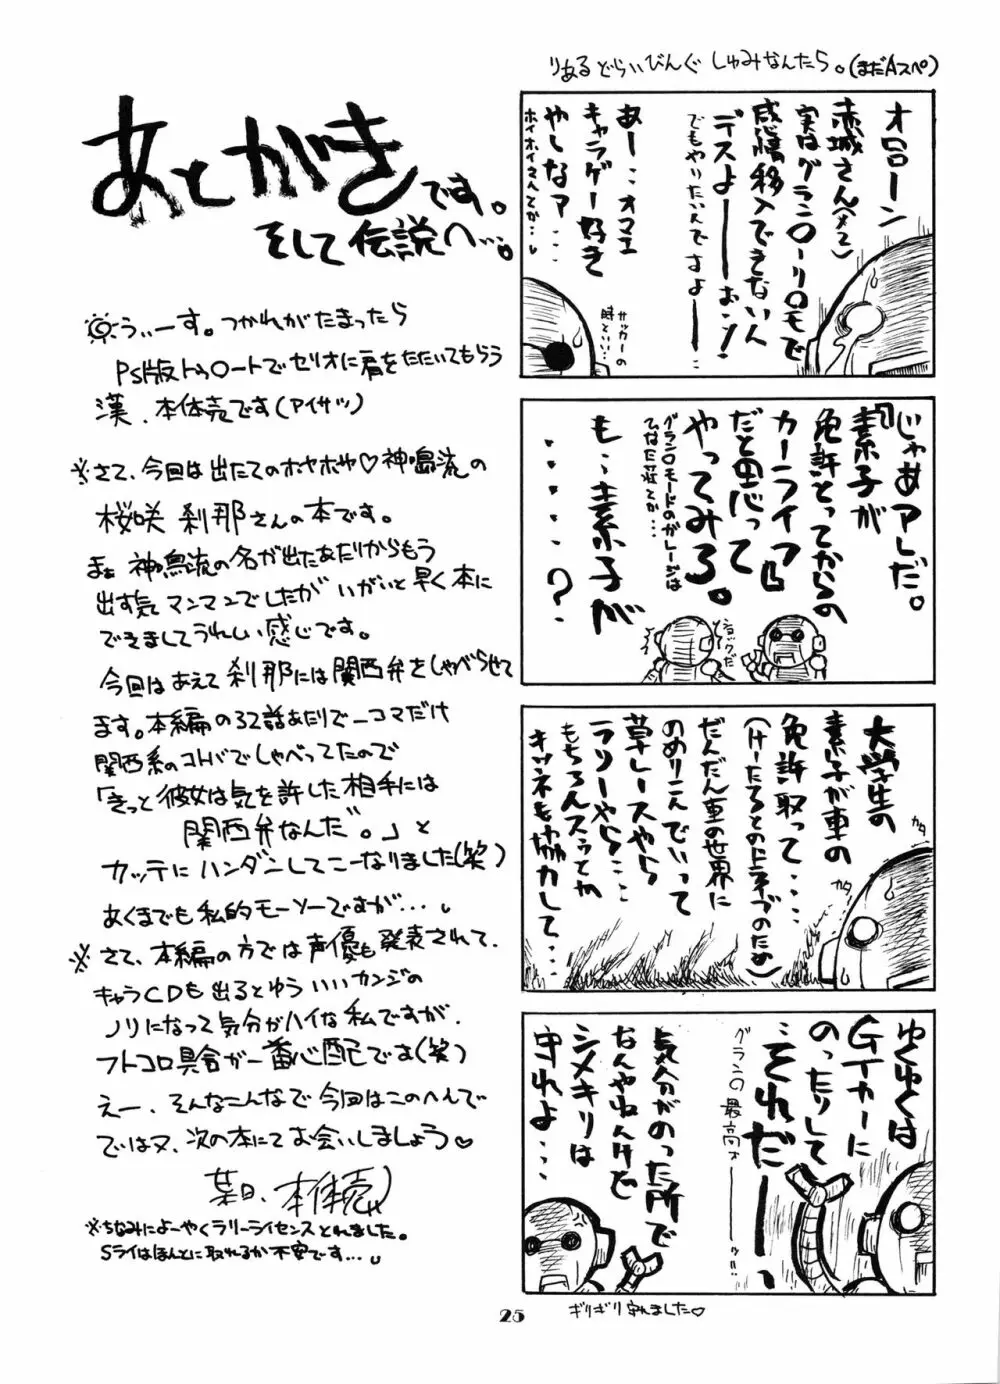 あとがきです。
そして伝説へ…。
うぃーす。つかれがたまったら
PS版トゥ〇ートでセリオに肩をたたいてもらう
漢、本体売です(アイサツ)
※さて、今回は出たてのホヤホヤ♡神鳴流の
桜咲 刹那さんの本です。
まぁ神鳴流の名が出たあたりからもう
出す気マンマンでしたがいがいと早く本に
できましてうれしい感じです。
今回はあえて刹那には関西弁をしゃべらせて
ます。本編の32話あたりで一コマだけ
関西系のコトバでしゃべってたので
「きっと彼女は気を許した相手には
関西弁なんだ。」と
カッテにハンダンしてこーなりました(笑)
あくまでも私的モーソーですが…。
※さて、本編の方では声優も発表されて、
キャラCDも出るとゆういいカンジの
ノリになって気分がハイな私ですが、
フトコロ具合が一番心配です(笑)
えー、そんなこんなで今回はこのへんで
ではヌ、次の本にてお会いしましょう♡
葉日、本体売
※ちなみによーやくラリーライセンスとれました。
Sライはほんとに取れるか不安です…。
りあるどらいびんぐ しゅみなんたら。(まだAスペ)
オローン
赤城さん(メマ)
実はグラン〇ーリ〇モで
感情移入できないん
デスよーーおッ!
でもやりたいんですよー…
あー…オマエ
キャラゲー好き
やしなァ…
ホイホイさんてか…
サッカーの
時といい…
『じゃあアレだ。
素子が
免許とってからの
カーライフ』
だと思って
やってみろ。
グラン〇モードのガレージは
ひなた荘とか…
も…素子が
・・・・・?
ショックだ
大学生の
素子が車の
免許取って…
(けーたろとのドライブのため)
だんだん車の世界に
のめりこんでいって
草レースやら
ラリーやら…
もちろんスゥとか
キツネも協力して…
カタ
カタ
ゆくゆくは
GTカーに
のったりして
…それだーーっ
グラン〇最高ォーーッ!!
気分がのった所で
なんやねんけど
シメキリは
守れよ…
ギリギリ守れました♡
25